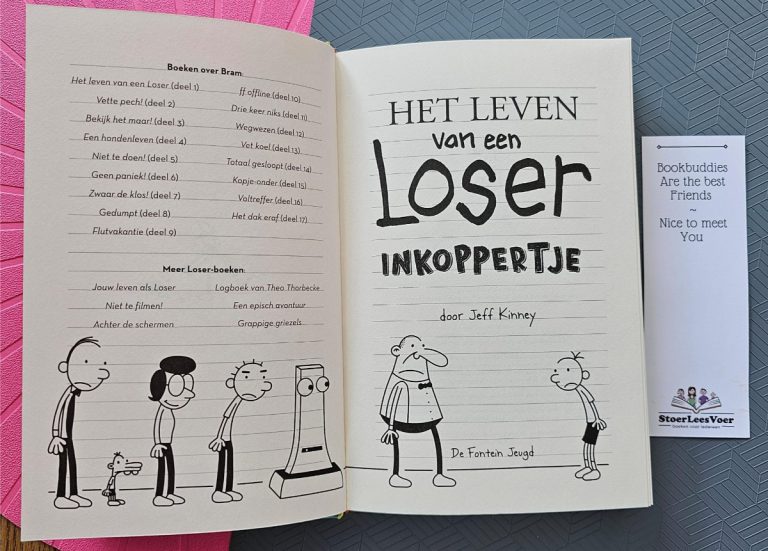 Boeken over Bram:
Het leven van een Loser (deel 1)
Vette pech! (deel 2)
Bekijk het maar! (deel 3)
Een hondenleven (deel 4)
Niet te doen! (deel 5)
Geen paniek! (deel 6)
Zwaar de klos! (deel 7)
Gedumpt (deel 8)
Flutvakantie (deel 9)
ff offline (deel 10)
Drie keer niks (deel 11)
Wegwezen (deel 12)
Vet koel (deel 13)
Totaal gesloopt (deel 14)
Kopje-onder (deel 15)
Voltreffer (deel 16)
Het dak eraf (deel 17)
Meer Loser-boeken:
Jouw leven als Loser
Niet te filmen!
Achter de schermen
Logboek van Theo Thorbecke
Een episch avontuur
Grappige griezels
HET LEVEN
van een
Loser
INKOPPERTJE
door Jeff Kinney
De Fontein Jeugd
Bookbuddies
Are the best
Friends
~
Nice to meet
You
StoerLeesVoer
boeken voor iedereen